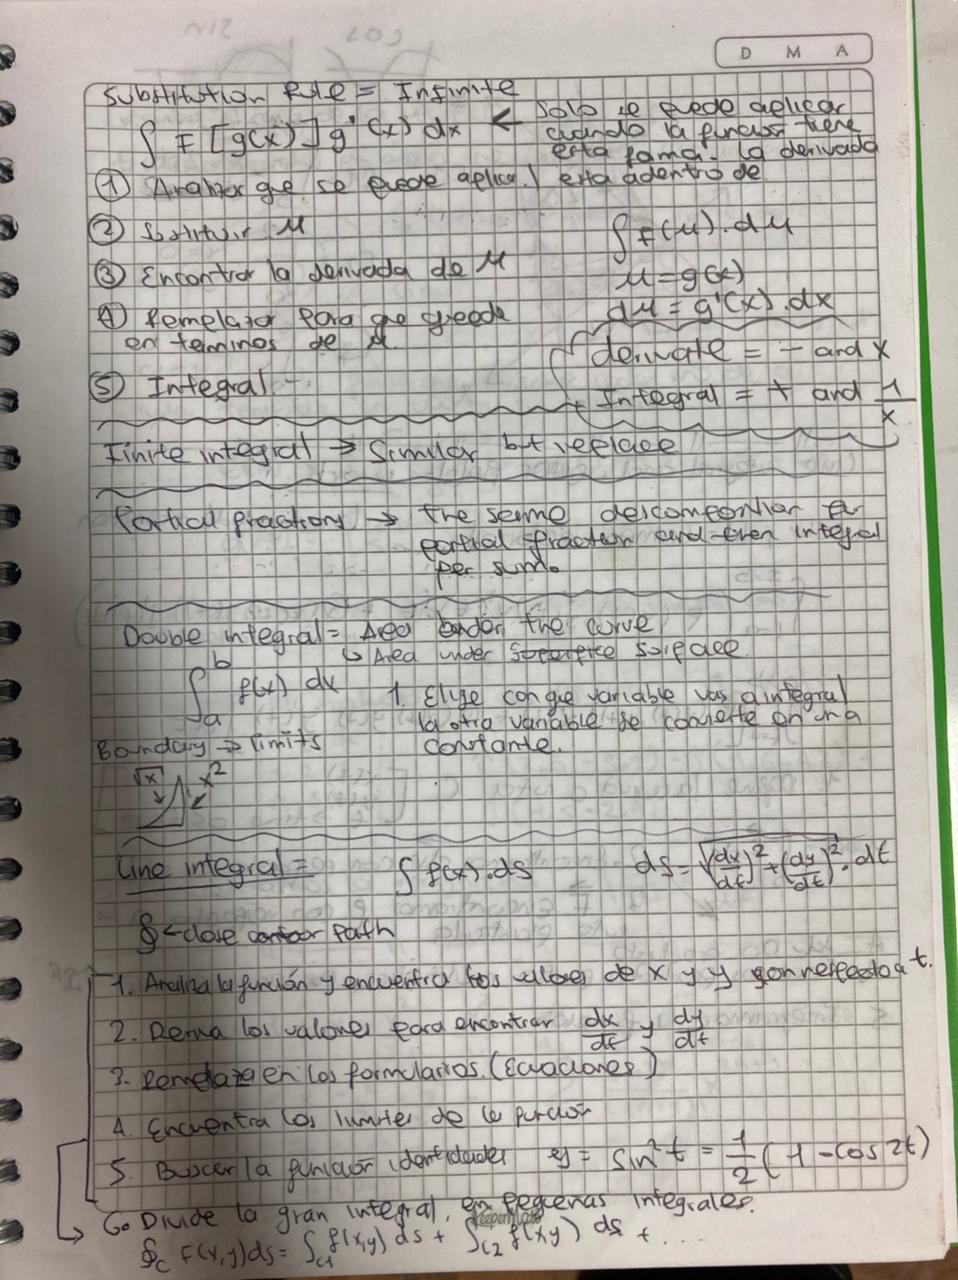 D M A
Substitution Rule = Infinite
∫ F [g(x)] g'(x) dx ← Solo se puede aplicar
cuando la funcion tiene
esta forma. La derivada
esta adentro de
① Analizar que se puede aplicar
② Sustituir μ
∫ F(μ). dμ
③ Encontrar la derivada de μ
μ = g(x)
④ Remplazar para que quede
en terminos de μ
dμ = g'(x). dx
derivate = - and x
⑤ Integral
Integral = + and 1/x
Finite integral → Similar but replace
Partial fractions → the same
partial fraction and integral
per sum.
Double integral = Area under the curve
↳ Area under surface
∫ₐᵇ f(x) dx 1. Elige con que variable vas a integral
la otra variable se convierte en una
constante.
Boundary → limits
√x x²
Line integral = ∫ f(x).ds ds = √(dx/dt)² + (dy/dt)² . dt
∮ ← close contour Path
1. Analiza la función y encuentra los valores de x y y con respecto a t.
2. Deriva los valores para encontrar dx/dt y dy/dt
3. Remplaza en los formularios. (Ecuaciones)
4. Encuentra los limites de la funcion
5. Buscar la funcion identidades ej = sin²t = 1/2 (1 - cos 2t)
6. Divide la gran integral, en pequenas integrales.
∮c F(x,y)ds = ∫c1 f(x,y) ds + ∫c2 f(x,y) ds + ....